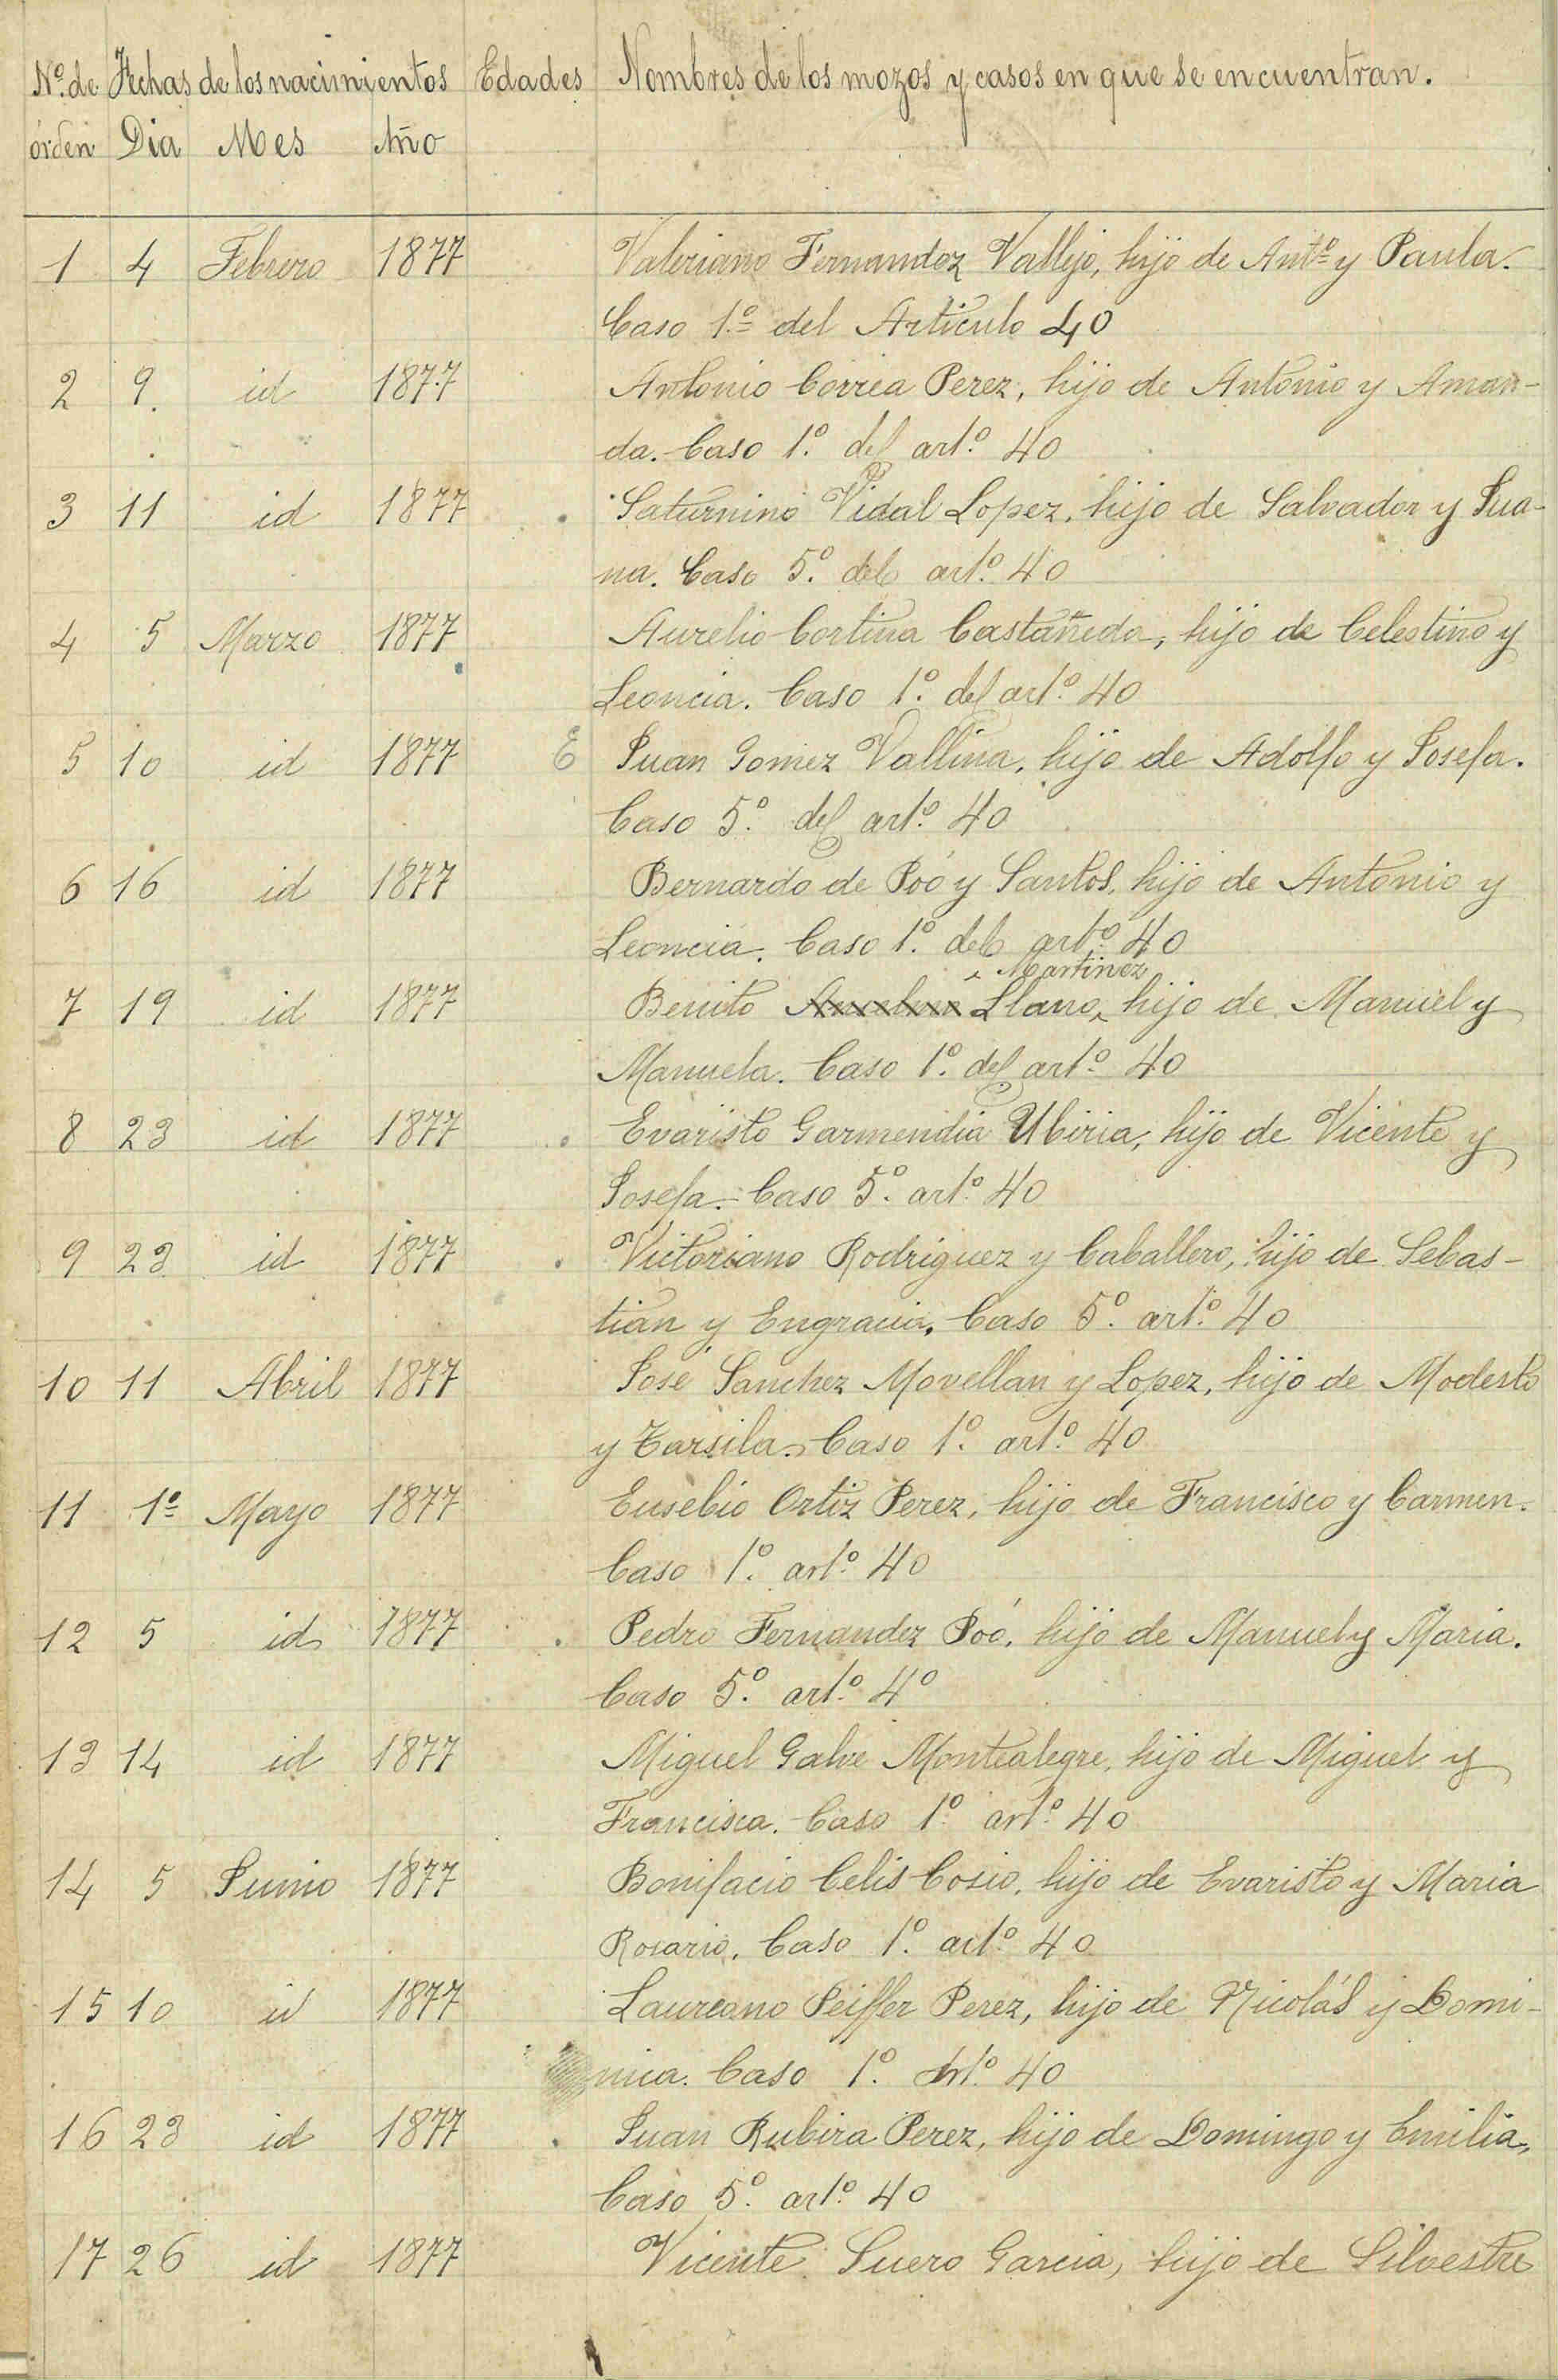 Nº de Fechas de los nacimientos Edades Nombres de los mozos y casos en que se encuentran.
órden Dia Mes Año
1 4 Febrero 1877 Valeriano Fernandez Vallejo, hijo de Antº y Paula.
Caso 1º del Articulo 40
2 9. id 1877 Antonio Correa Perez, hijo de Antonio y Aman-
da. Caso 1º. del artº. 40
3 11 id 1877 Saturnino Vidal Lopez, hijo de Salvador y Jua-
na. Caso 5º. del artº. 40
4 5 Marzo 1877 Aurelio Cortina Castañeda, hijo de Celestino y
Leoncia. Caso 1º. del artº. 40
5 10 id 1877 E Juan Gomez Vallina, hijo de Adolfo y Josefa.
Caso 5º. del artº. 40
6 16 id 1877 Bernardo de Poó y Santos, hijo de Antonio y
Leoncia. Caso 1º. del artº. 40
Martinez
7 19 id 1877 Benito Llano, hijo de Manuel y
Manuela. Caso 1º. del artº. 40
8 23 id 1877 Evaristo Garmendia Ubiria, hijo de Vicente y
Josefa. Caso 5º. artº. 40
9 23 id 1877 Victoriano Rodriguez y Caballero, hijo de Sebas-
tian y Engracia. Caso 5º. artº. 40
10 11 Abril 1877 José Sanchez Movellan y Lopez, hijo de Modesto
y Tarsila. Caso 1º. artº. 40
11 1º Mayo 1877 Eusebio Ortiz Perez, hijo de Francisco y Carmen.
Caso 1º. artº. 40
12 5 id 1877 Pedro Fernandez Poó, hijo de Manuel y Maria.
Caso 5º. artº. 40
13 14 id 1877 Miguel Galve Montealegre, hijo de Miguel y
Francisca. Caso 1º. artº. 40
14 5 Junio 1877 Bonifacio Celis Cosio, hijo de Evaristo y Maria
Rosario. Caso 1º. artº. 40
15 10 id 1877 Laureano Peiffer Perez, hijo de Nicolás y Domi-
nica. Caso 1º. Artº. 40
16 23 id 1877 Juan Rubira Perez, hijo de Domingo y Emilia,
Caso 5º. artº. 40
17 26 id 1877 Vicente Suero Garcia, hijo de Silvestre